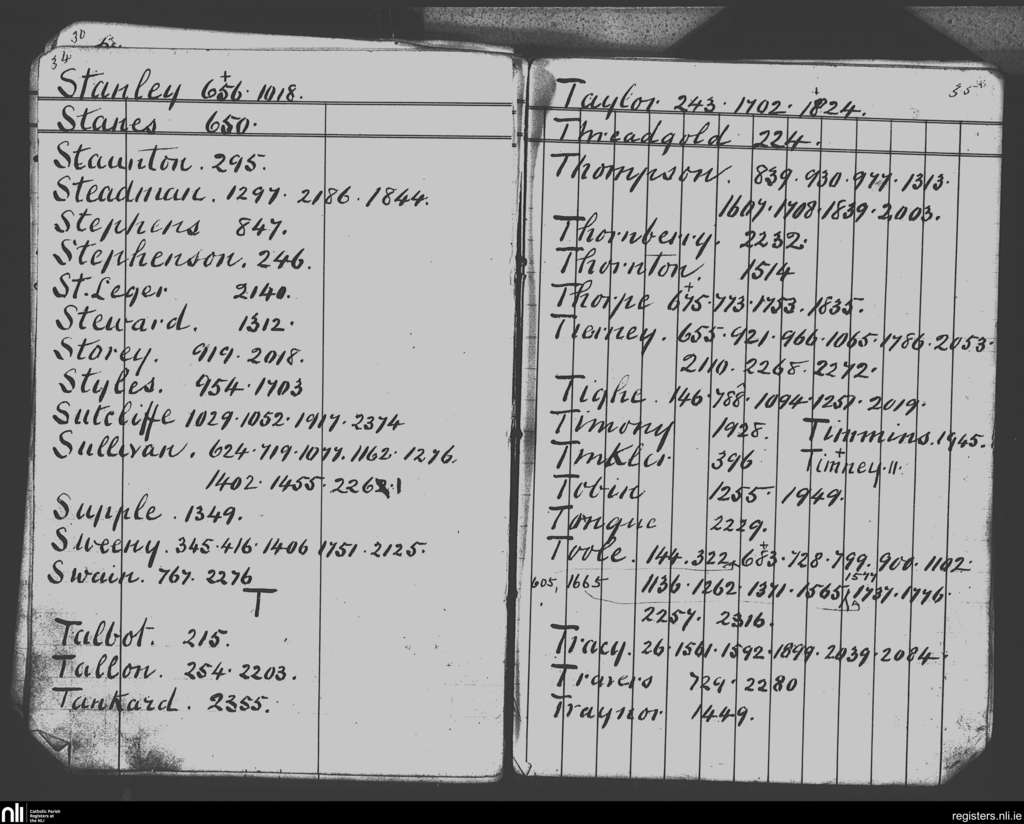 30
34
Stanley 656 . 1018.
Stanes 650.
Staunton . 295.
Steadman . 1297 . 2186 . 1844.
Stephens 847.
Stephenson . 246.
St. Leger 2140.
Steward . 1312.
Storey . 919 . 2018.
Styles . 954 . 1703
Sutcliffe 1029 . 1052 . 1917 . 2374
Sullivan . 624 . 719 . 1077 . 1162 . 1276.
1402 . 1455 .
Supple . 1349.
Sweeny . 345 . 416 . 1406 1751 . 2125.
Swain . 767 . 2276
T
Talbot . 215.
Tallon . 254 . 2203.
Tankard . 2355.
35
Taylor 243 . 1702 . 1824.
Threadgold 224.
Thompson . 839 . 930 . 977 . 1313.
1607 . 1708 . 1839 . 2003.
Thornberry . 2232.
Thornton . 1514
Thorpe 675 . 773 . 1753 . 1835.
Tierney . 655 . 921 . 966 . 1065 . 1786 . 2053.
2110 . 2268 . 2272.
Tighe . 146 . 788 . 1094 . 1251 . 2019.
Timony 1928. Timmins . 1945.
Tinkler 396 Timney . 11
Tobin 1255 . 1949.
Tongue 2229.
Toole . 144 . 322 + 683 . 728 . 799 . 900 . 1102.
605, 1665 1136 . 1262 . 1371 . 1565 1577 1737 . 1776.
2257 . 2316.
Tracy . 26 . 1561 . 1592 . 1899 . 2039 . 2084.
Travers 729 . 2280
Traynor 1449.
nli
Catholic Parish
Registers at
the NLI
registers.nli.ie